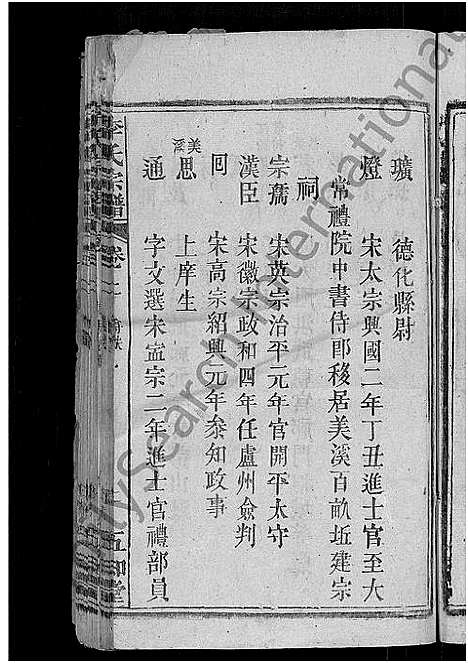 璜　德化縣尉
燈　宋太宗興國二年丁丑進士官至大
常禮院中書侍郎移居美溪百畝坵建宗
祠
宗喬　宋英宗治平元年官開平太守
漢臣　宋徽宗政和四年任盧州僉判
囘　宋高宗紹興元年叅知政事
美溪
思　上庠生
通　字文選宋寧宗二年進士官禮部員
李氏宗譜
卷
五
堂
FamilySearch International